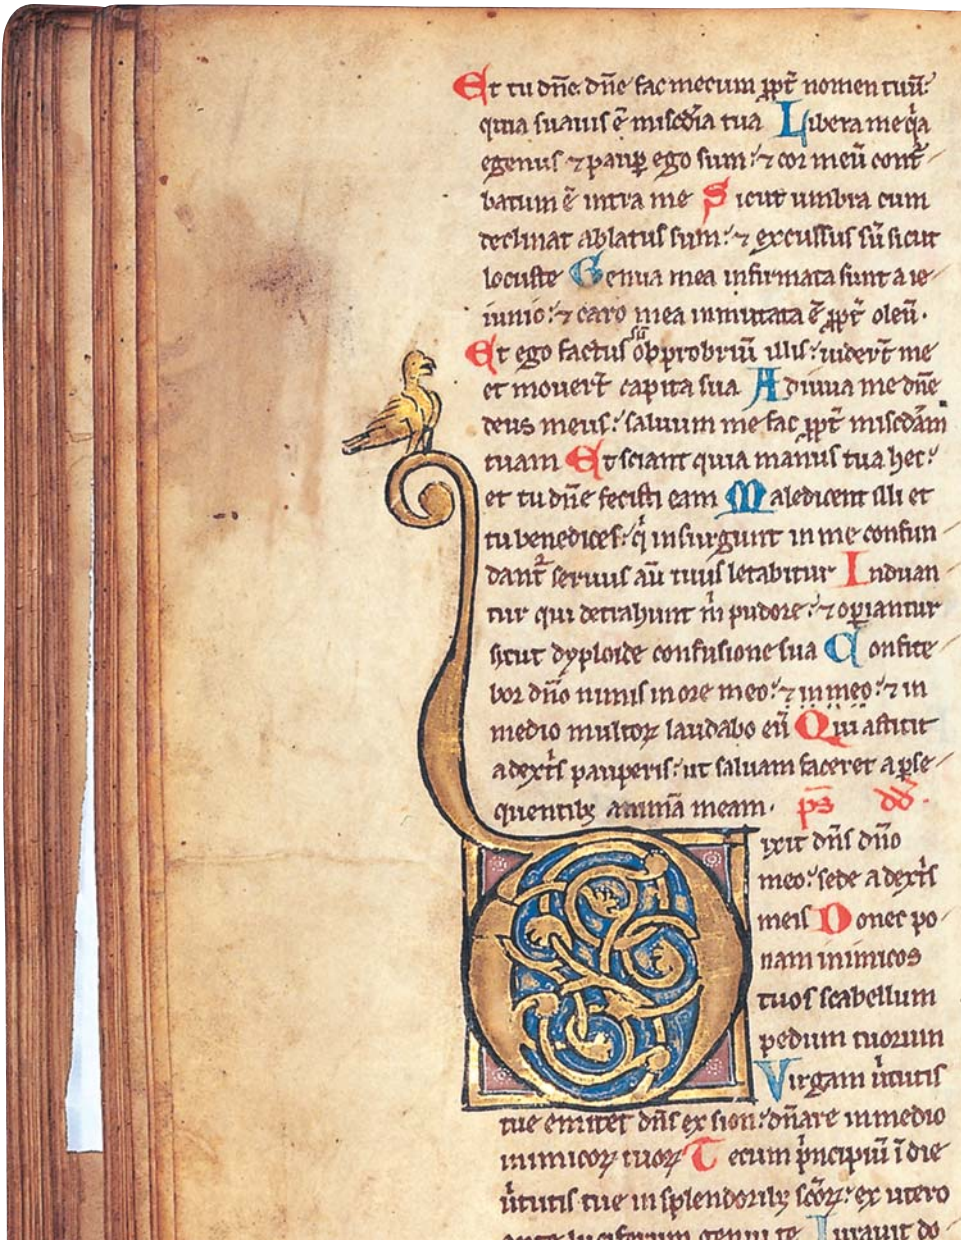 Et tu dñe dñe fac mecum ꝓpt̃ nomen tuũ:
quia suauis ẽ misc̃dia tua Libera me q̃a
egenus ⁊ paup̱ ego sum: ⁊ cor meũ cont᷑
batum ẽ intra me Sicut umbra cum
declinat ablatus sum: ⁊ excussus sũ sicut
locuste Genua mea infirmata sunt a ie
iunio: ⁊ caro mea inmutata ẽ ꝓpt̃ oleũ.
Et ego factus sũ obprobriũ illis: uider̃t me
et mouer̃t capita sua Adiuua me dñe
deus meus: saluum me fac ꝓpt̃ misc̃dãm
tuam Et sciant quia manus tua hec:
et tu dñe fecisti eam Maledicent illi et
tu benedices: q̇ insurgunt in me confun
dant᷑ seruus aũ tuus letabitur Induan
tur qui detrahunt m̊ pudore: ⁊ opiantur
sicut dyploide confusione sua Confite
bor dño nimis in ore meo: ⁊ in meo: ⁊ in
medio multoꝝ laudabo eũ Qui astitit
a dext̃s pauperis: ut saluam faceret a p̱se
quentibꝫ animã meam. p̃s dd̃.
Dixit dñs dño
meo: sede a dext̃s
meis Donec po
nam inimicos
tuos scabellum
pedum tuorum
Virgam ũtutis
tue emittet dñs ex sion: dñare in medio
inimicoꝝ tuoꝝ Tecum p̃ncipiũ ĩ die
ũtutis tue in splendoribꝫ sc̃oꝝ: ex utero
ante luciferum genui te Iurauit do